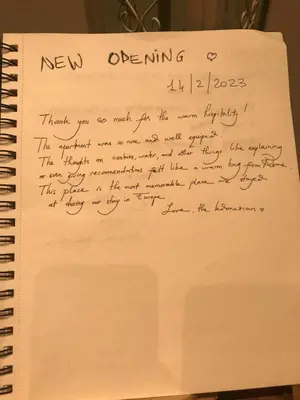 NEW OPENING ♡
14/2/2023
Thank you so much for the warm hospitality!
The apartment was so nice and well equiped
The thoughts on cookies, water, and other things like explaining
or even giving recommendations felt like a warm hug from Rome.
This place is the most memorable place we stayed
at during our stay in Europe
Love, the Indonesian ♡